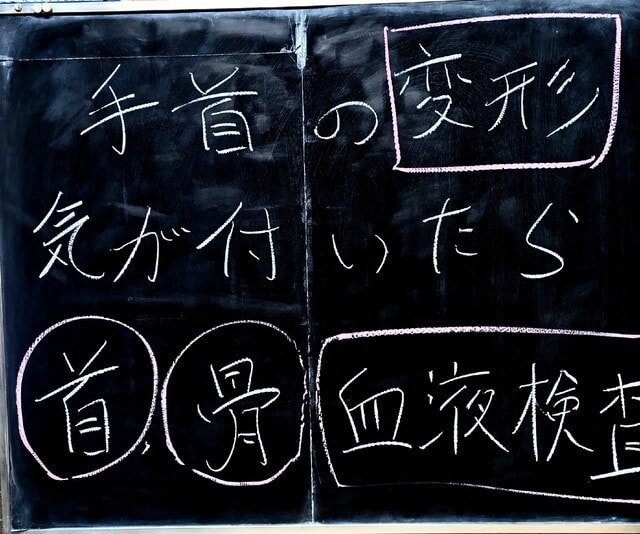 手首の変形
気が付いたら
首、骨 血液検査